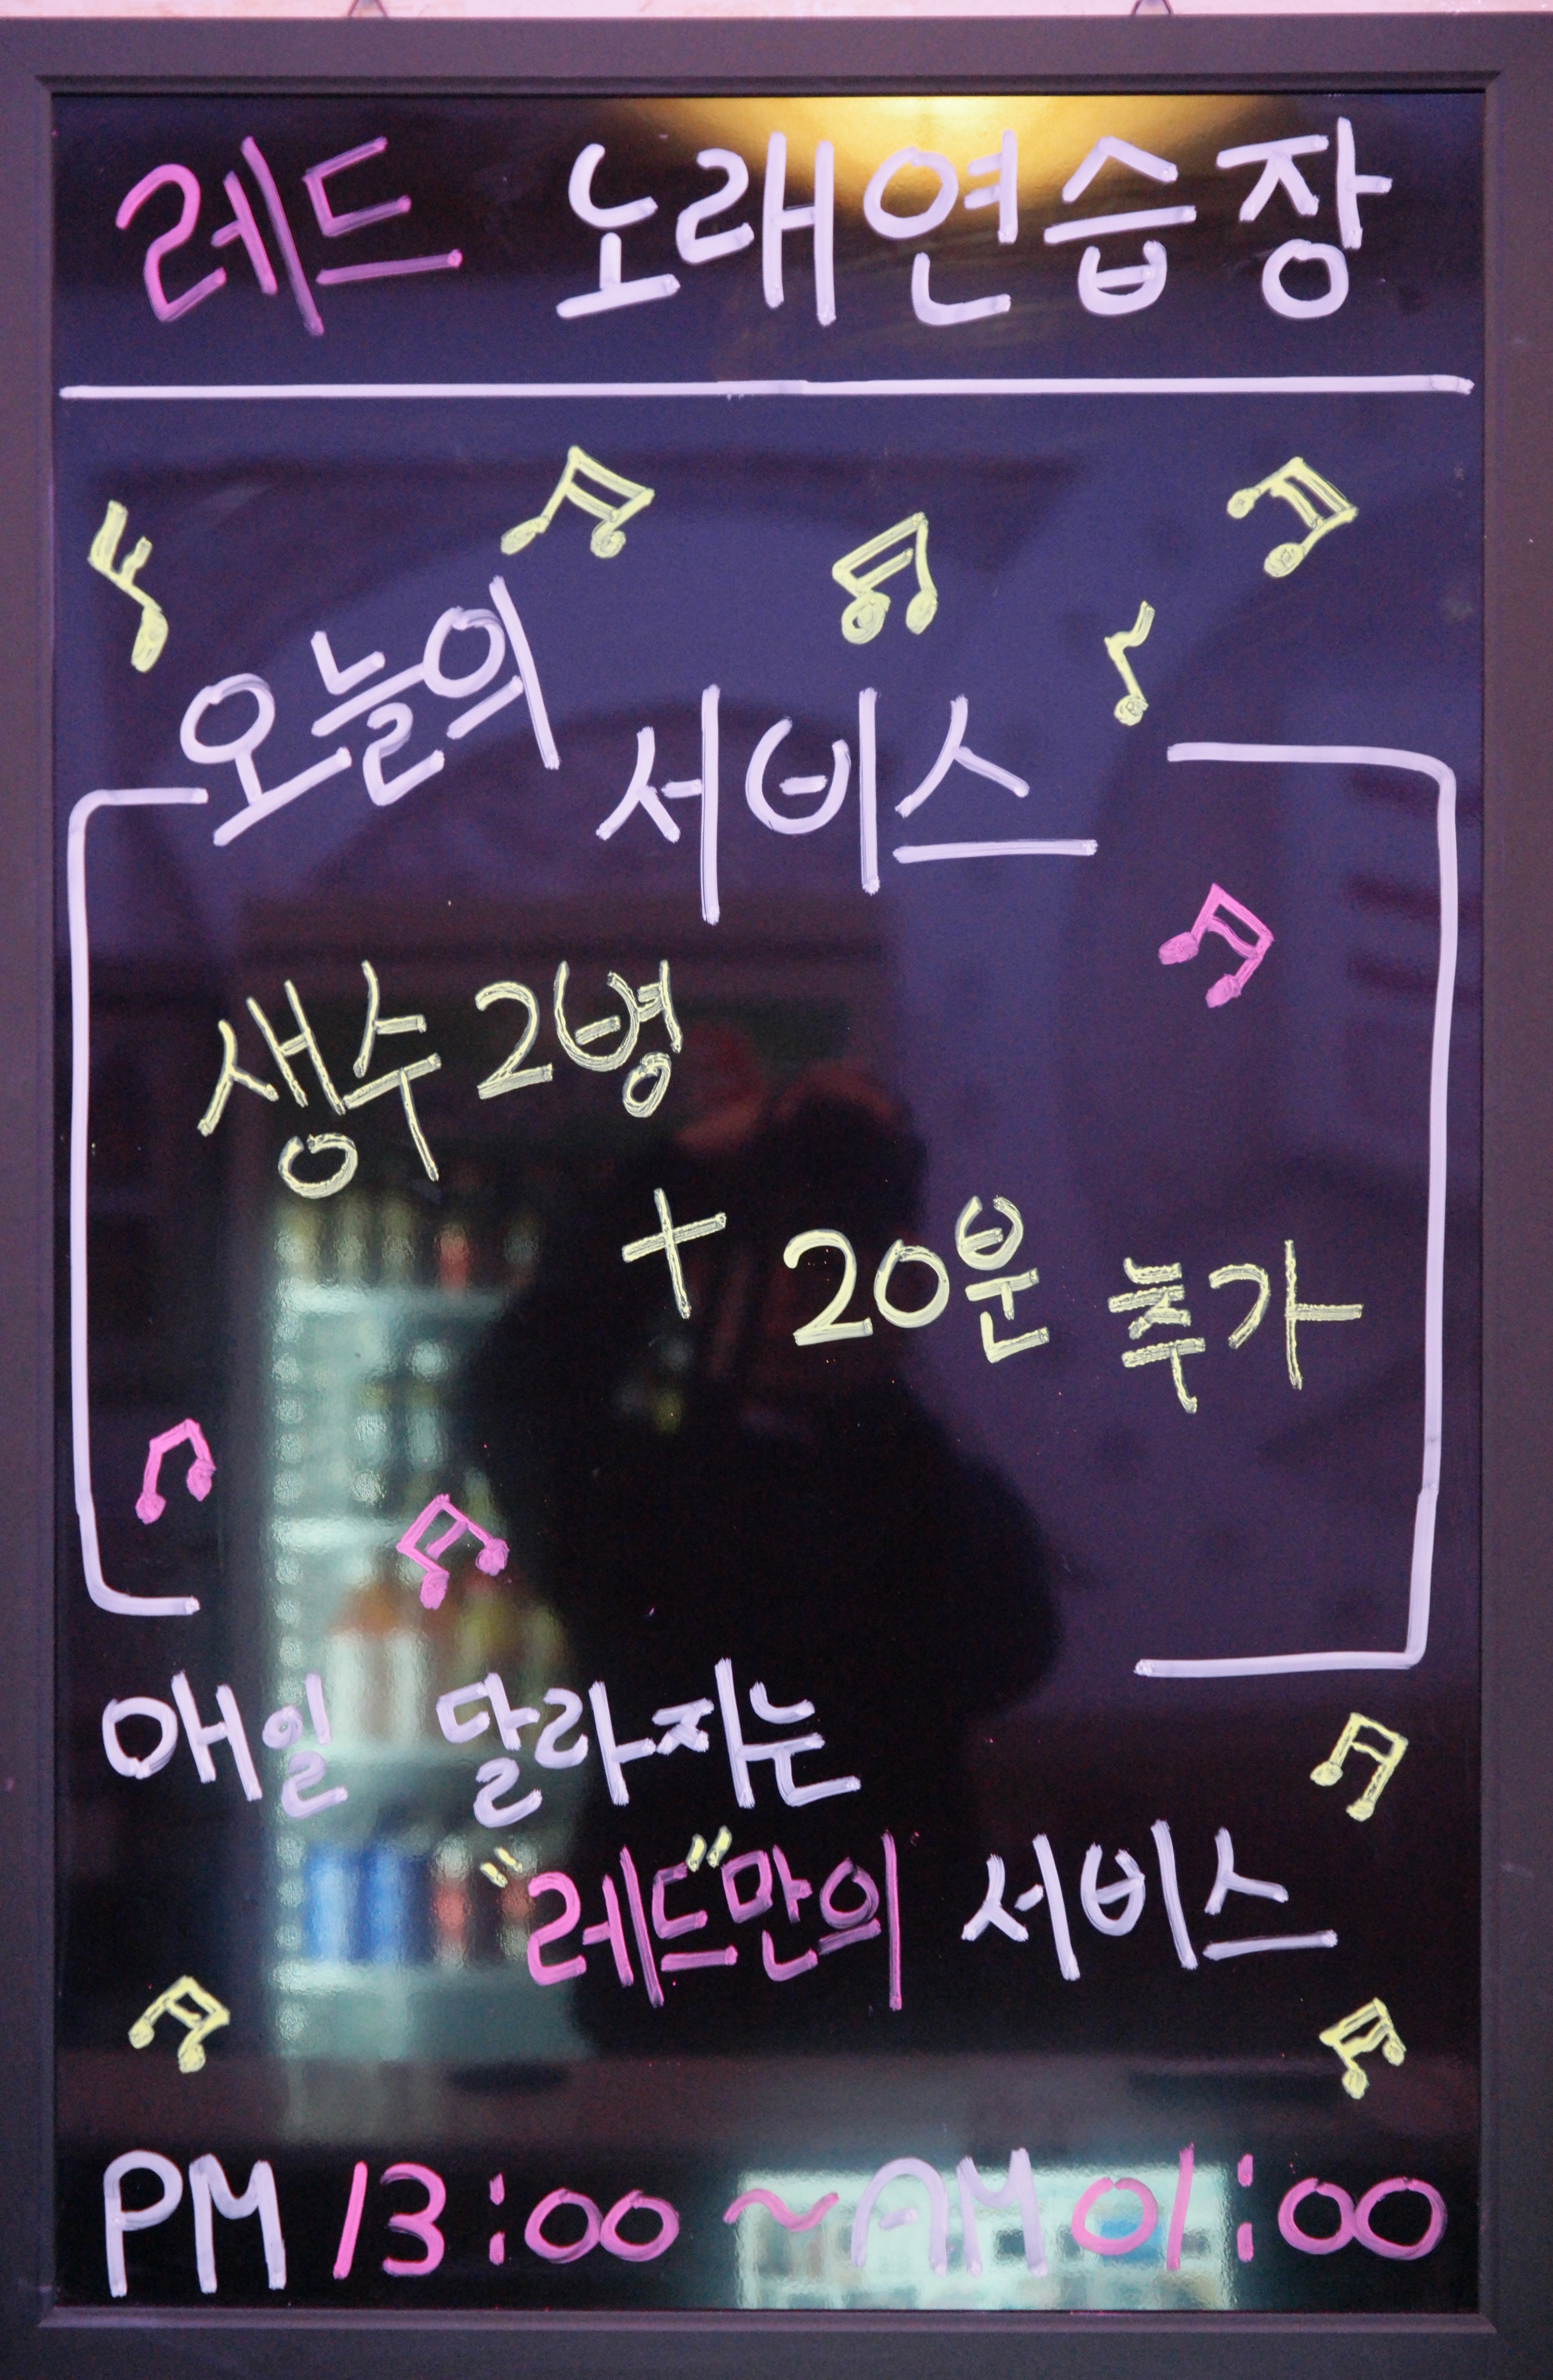 레드 노래연습장
오늘의 서비스
생수 2병
+ 20분 추가
매일 달라지는
"레드"만의 서비스
PM 13:00 ~ AM 01:00